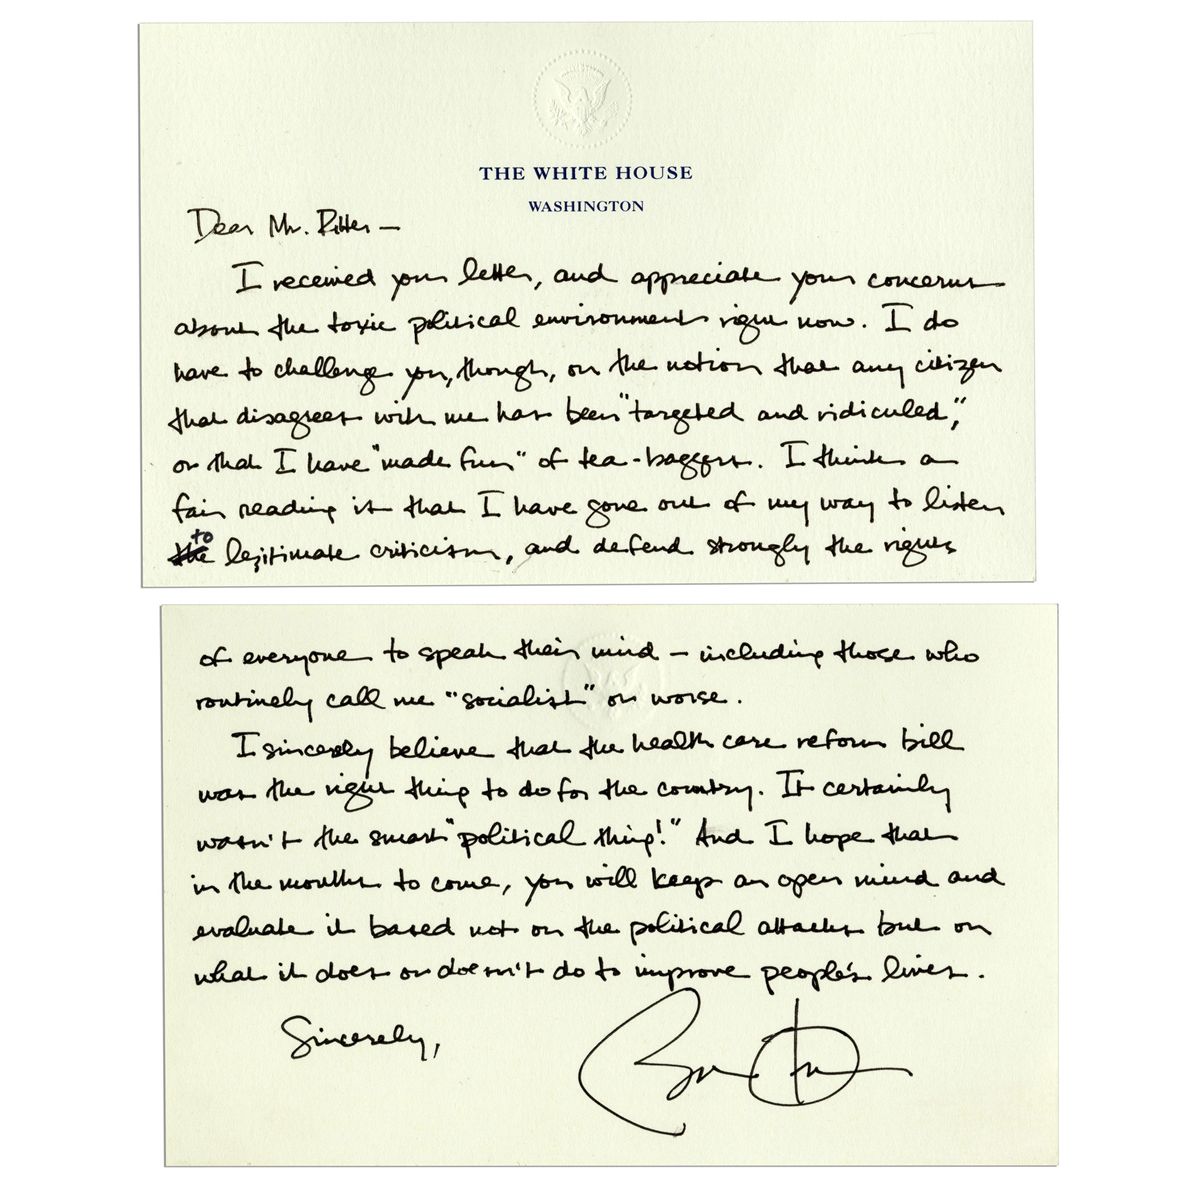 THE WHITE HOUSE
WASHINGTON
Dear Mr. Ritter —
I received your letter, and appreciate your concerns
about the toxic political environment right now. I do
have to challenge you, though, on the notion that any citizen
that disagrees with me has been "targeted and ridiculed,"
or that I have "made fun" of tea-baggers. I think a
fair reading is that I have gone out of my way to listen
to legitimate criticism, and defend strongly the rights
of everyone to speak their mind — including those who
routinely call me "socialist" or worse.
I sincerely believe that the health care reform bill
was the right thing to do for the country. It certainly
wasn't the smart "political thing!" And I hope that
in the months to come, you will keep an open mind and
evaluate it based not on the political attacks but on
what it does or doesn't do to improve people's lives.
Sincerely,